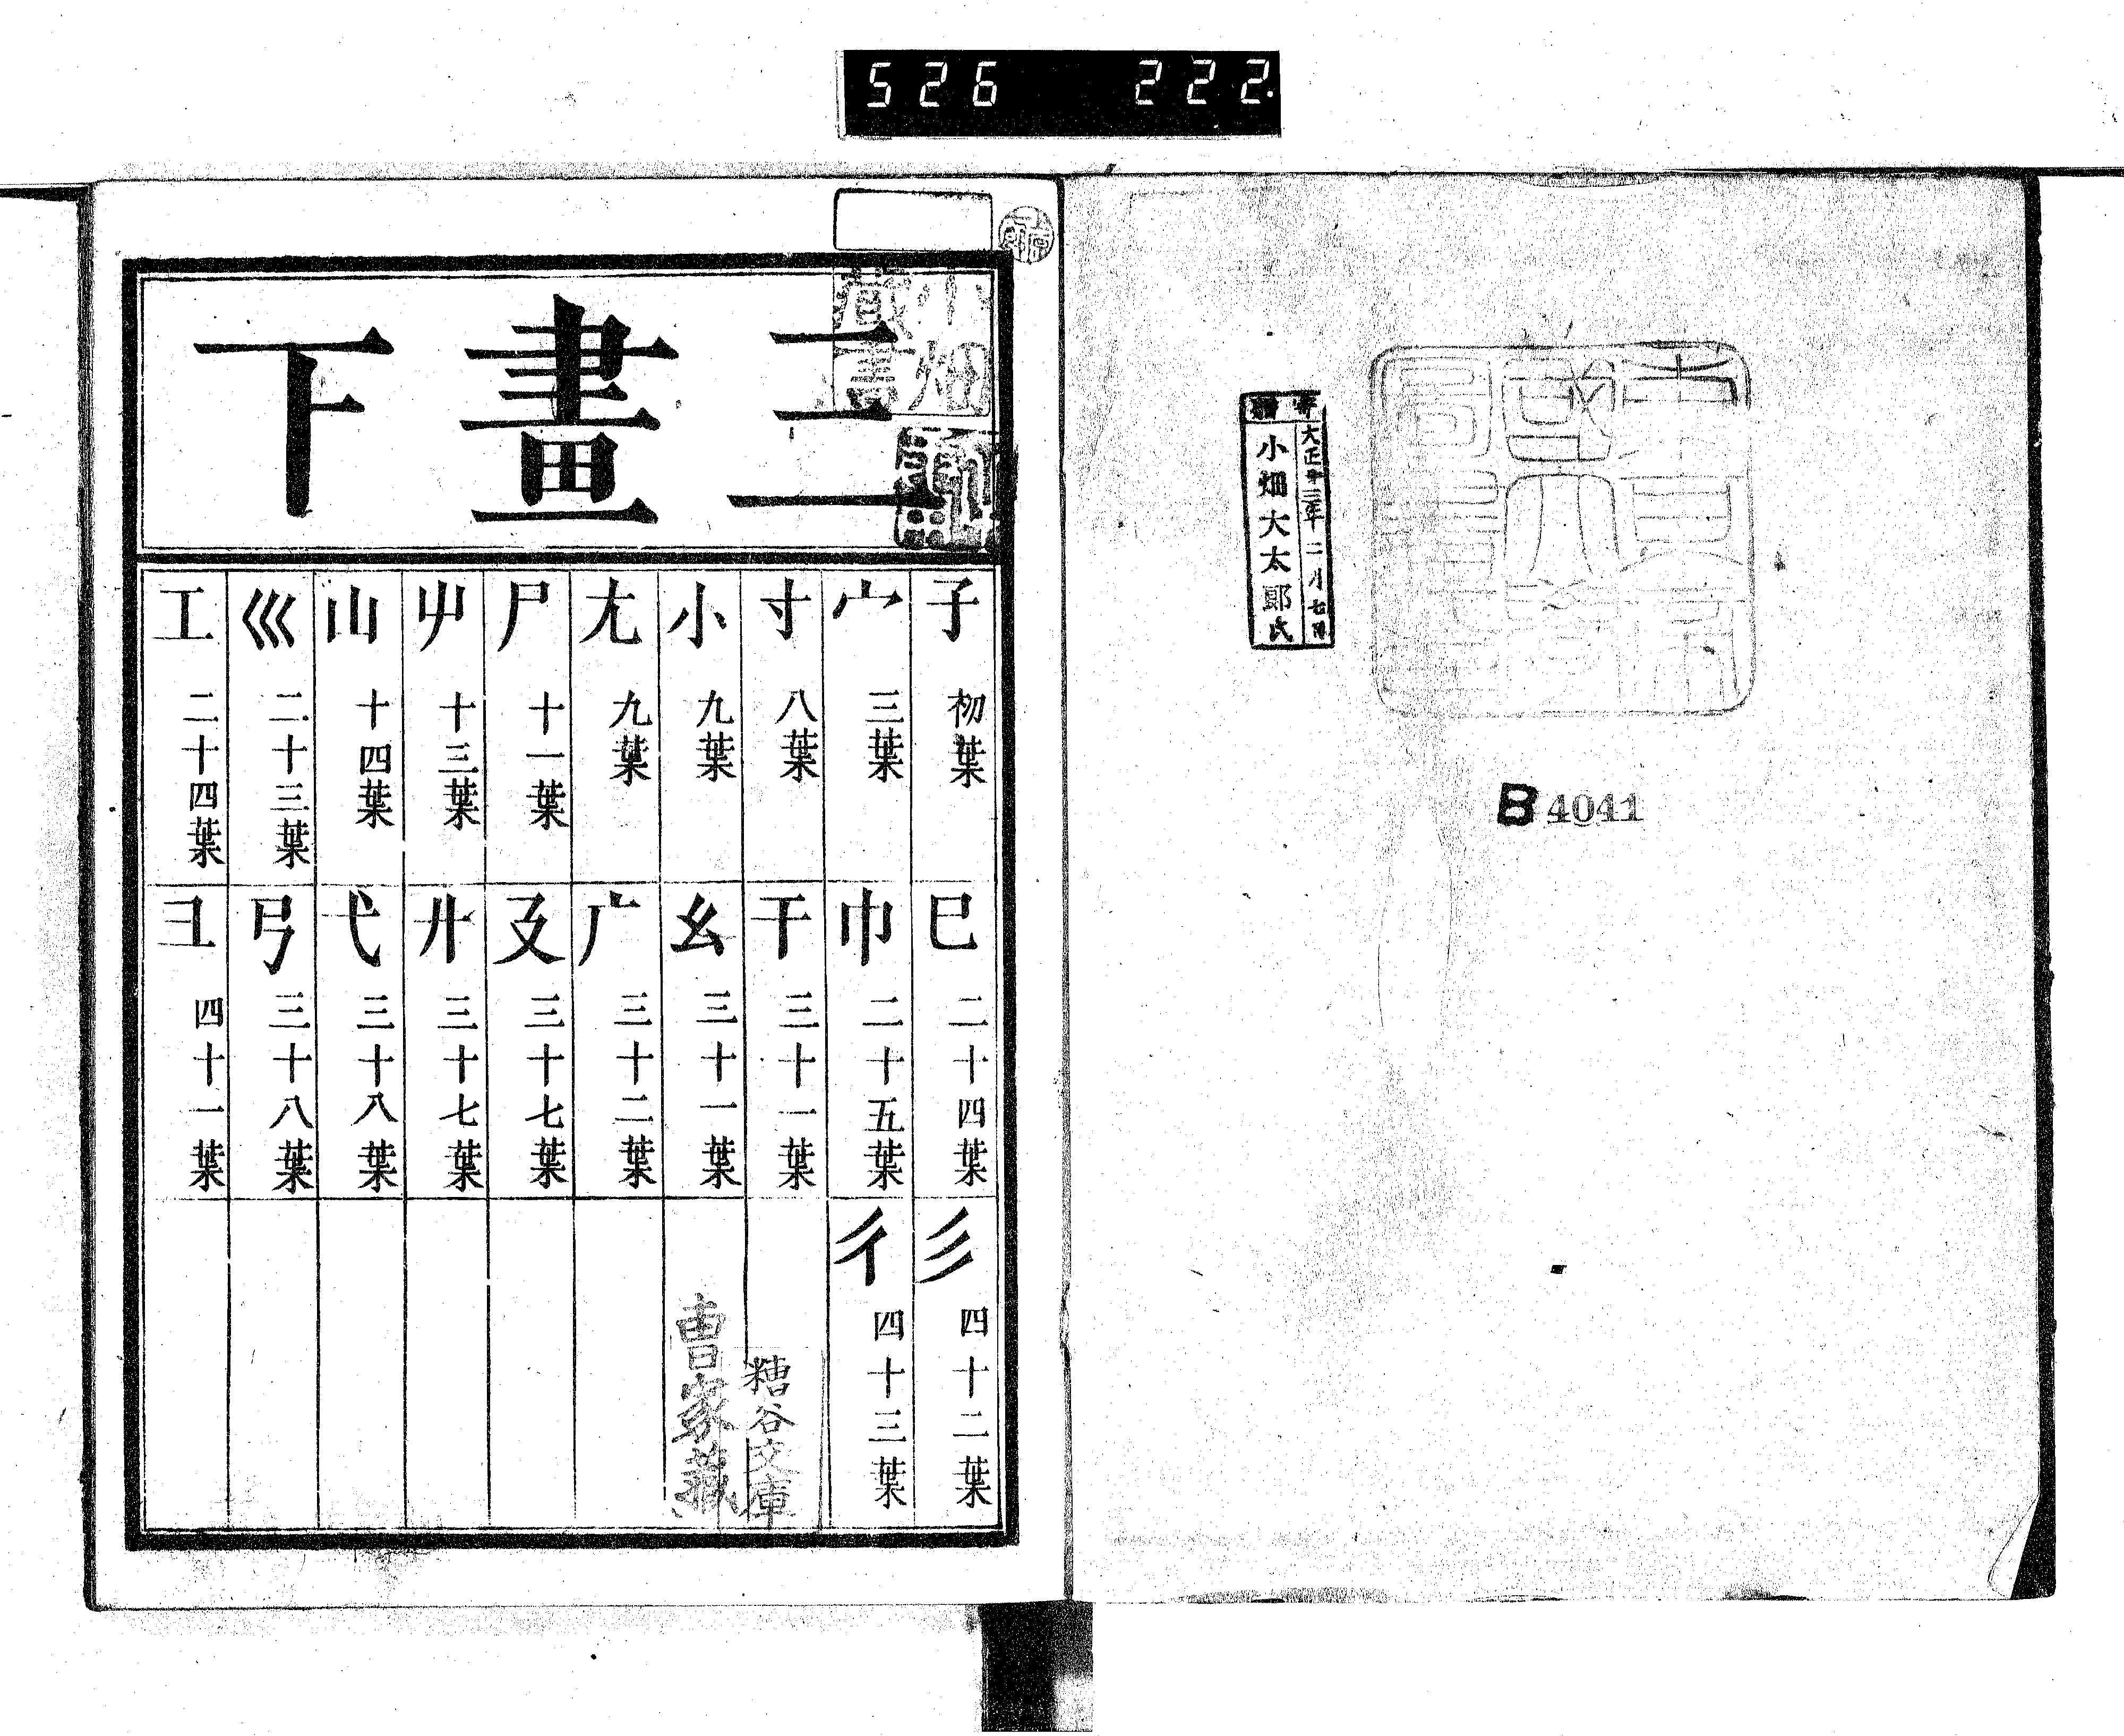 526 222.
寄贈
大正十三年二月七日
小畑大太郎氏
B 4041
小畑
藏書
三畫下
子 初葉
宀 三葉
寸 八葉
小 九葉
尢 九葉
尸 十一葉
屮 十三葉
山 十四葉
巛 二十三葉
工 二十四葉
巳 二十四葉
巾 二十五葉
干 三十一葉
幺 三十一葉
广 三十二葉
廴 三十七葉
廾 三十七葉
弋 三十八葉
弓 三十八葉
彐 四十一葉
彡 四十二葉
彳 四十三葉
糟谷文庫
曹家藏